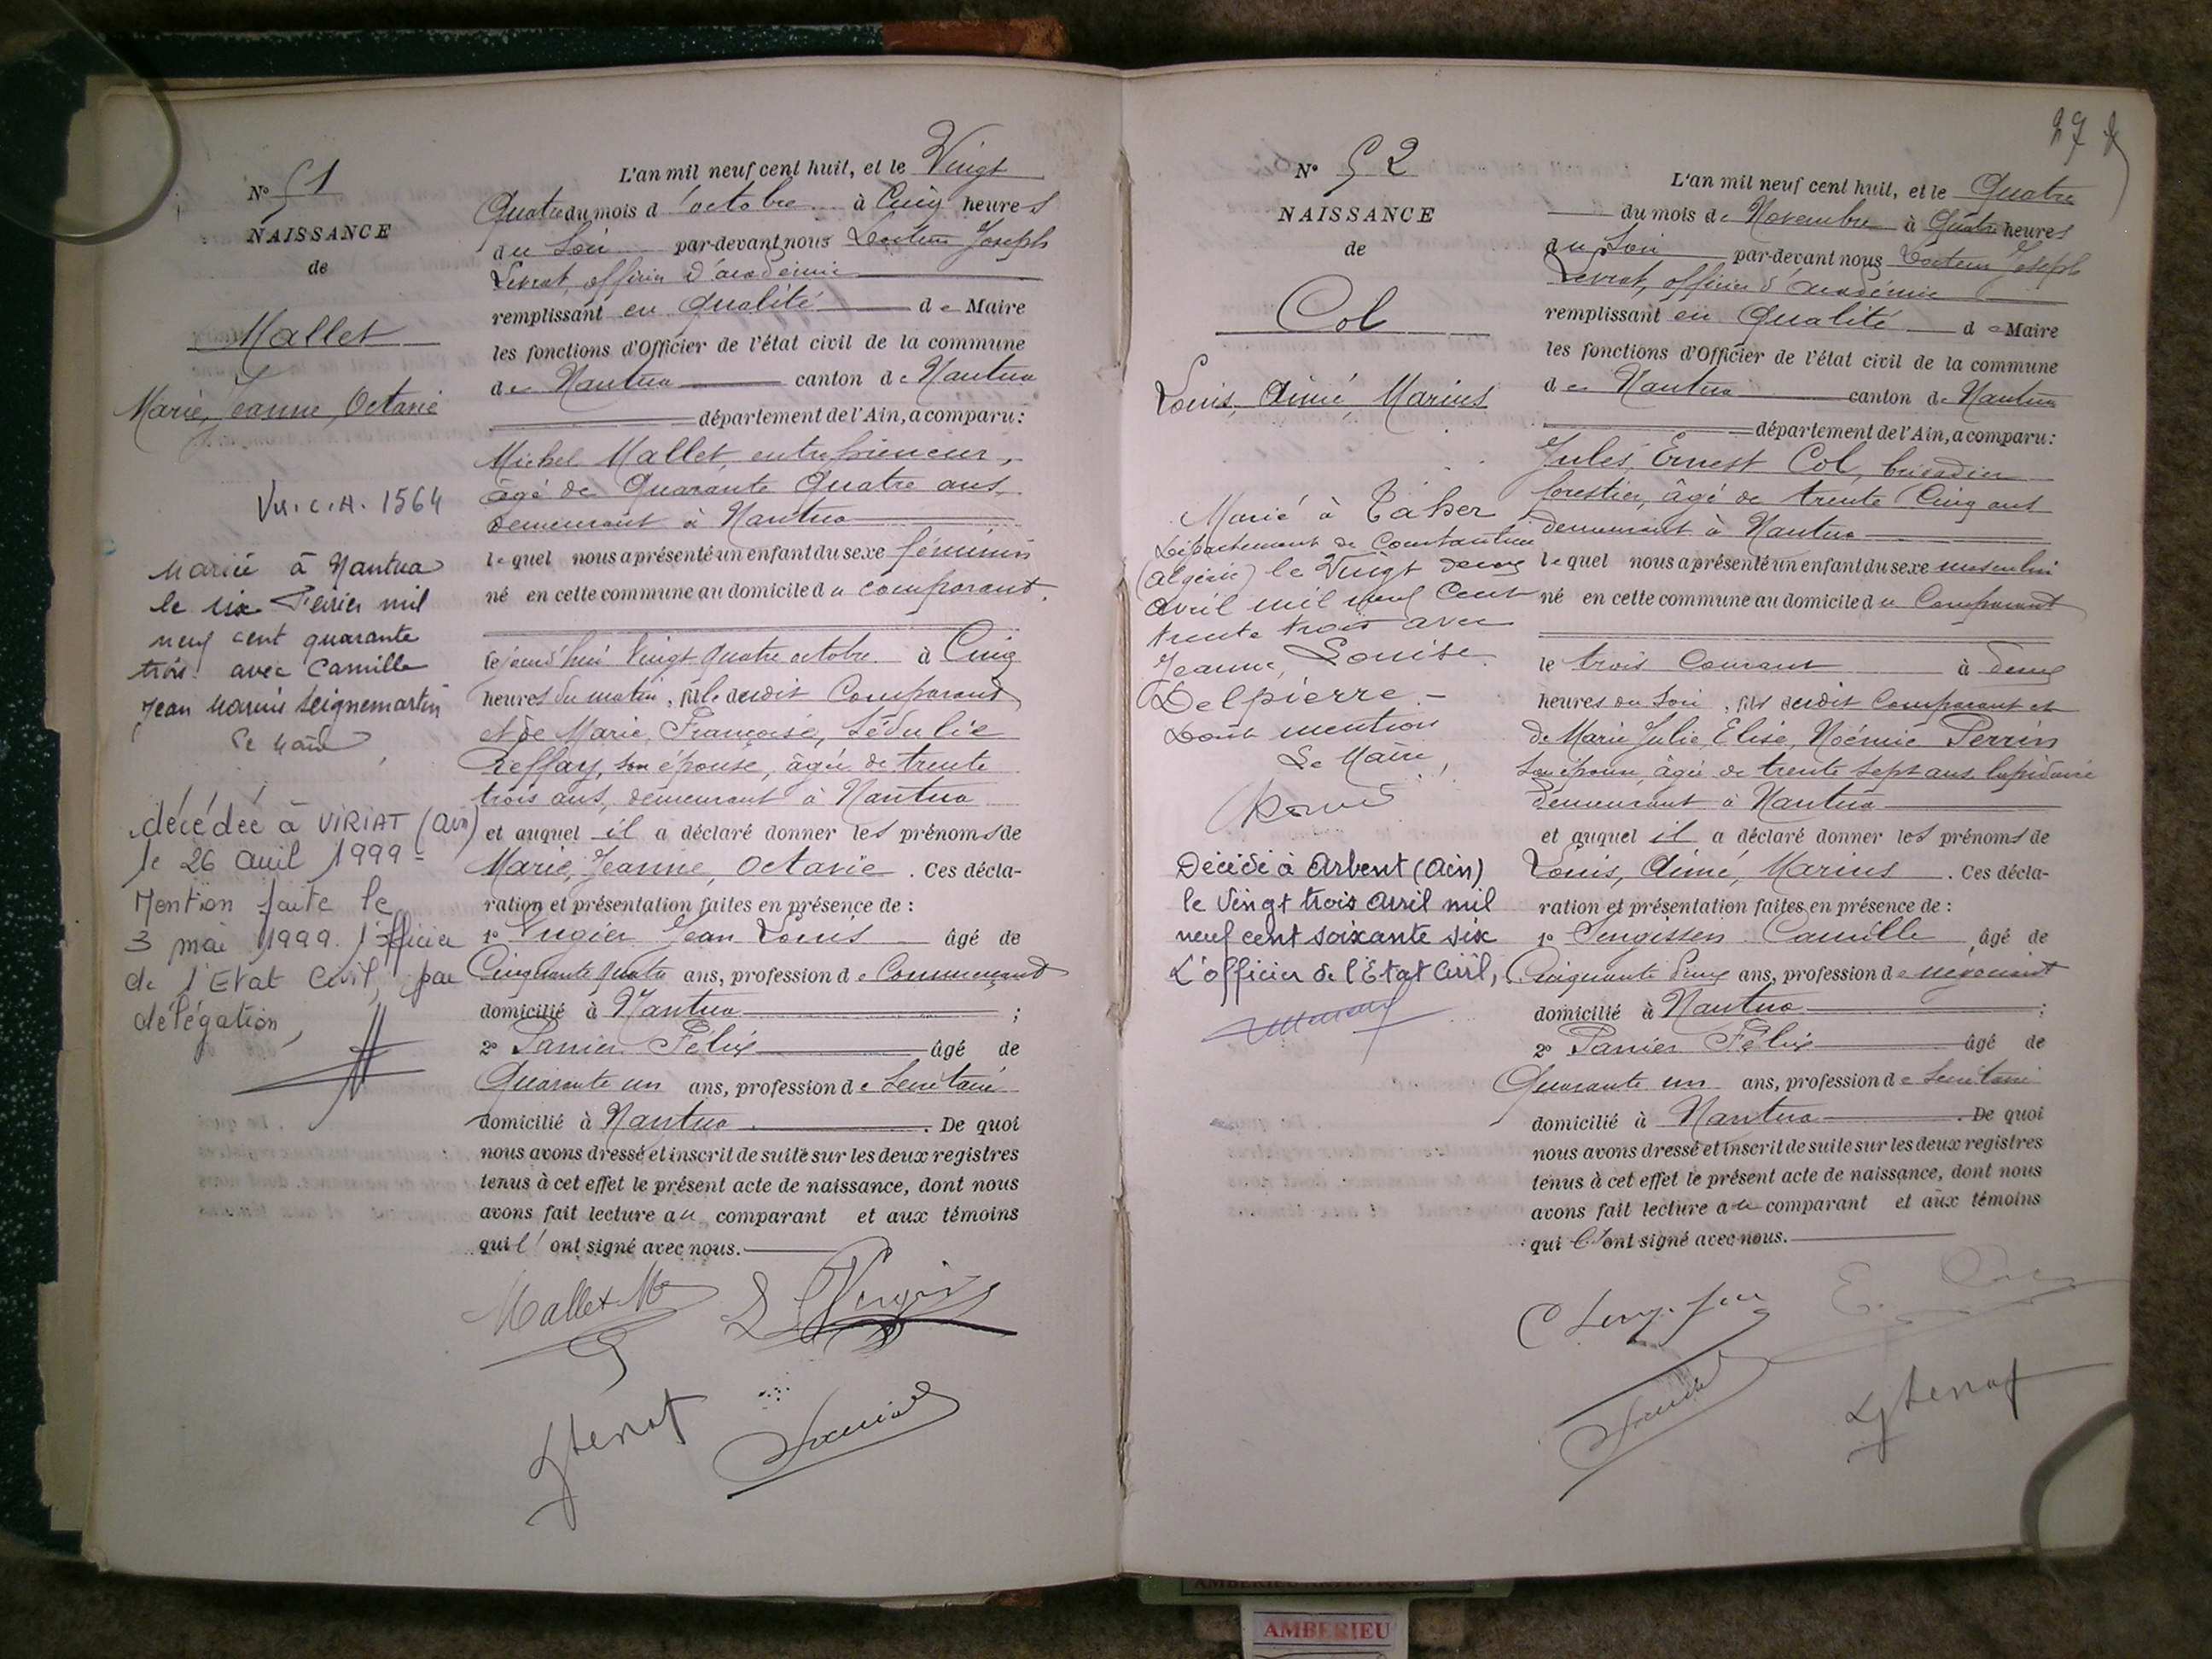 N° 51
NAISSANCE
de
Mallet
Marie, Jeanne, Octavie
Vu. C.A. 1564
Mariée à Nantua
le six Février mil
neuf cent quarante
trois avec Camille
Jean Marius Seignemartin
Le Maire
décédée à VIRIAT (Ain)
le 26 avril 1999 -
Mention faite le
3 mai 1999. l'officier
de l'Etat Civil, par
délégation,
L'an mil neuf cent huit, et le Vingt
Quatre du mois d'octobre à Cinq heures
du Soir par-devant nous Docteur Joseph
Levrat, officier d'académie
remplissant en qualité de Maire
les fonctions d'Officier de l'état civil de la commune
de Nantua canton de Nantua
département de l'Ain, a comparu:
Michel Mallet, entrepreneur,
âgé de Quarante Quatre ans,
demeurant à Nantua
lequel nous a présenté un enfant du sexe féminin
né en cette commune au domicile du comparant.
cejourd'hui Vingt quatre octobre à Cinq
heures du matin, fille dudit Comparant
et de Marie, Françoise, Sédulie
Reffay, son épouse, âgée de trente
trois ans, demeurant à Nantua
et auquel il a déclaré donner les prénoms de
Marie, Jeanne, Octavie. Ces décla-
ration et présentation faites en présence de :
1° Jean Louis âgé de
Cinquante quatre ans, profession de Commerçant
domicilié à Nantua ;
2° Panier Félix âgé de
Quarante un ans, profession de Secrétaire
domicilié à Nantua. De quoi
nous avons dressé et inscrit de suite sur les deux registres
tenus à cet effet le présent acte de naissance, dont nous
avons fait lecture au comparant et aux témoins
qui l'ont signé avec nous.
Mallet M
27
N° 52
NAISSANCE
de
Col
Louis, Aimé, Marius
Marié à Taher
Département de Constantine
(Algérie) le Vingt deux
avril mil neuf Cent
trente trois avec
Jeanne, Louise
Delpierre -
Dont mention
Le Maire,
Décédé à Arbent (Ain)
le Vingt trois avril mil
neuf cent soixante six
L'officier de l'Etat Civil,
L'an mil neuf cent huit, et le Quatre
du mois de Novembre à Quatre heures
du Soir par-devant nous Docteur Joseph
Levrat, officier d'académie
remplissant en Qualité de Maire
les fonctions d'Officier de l'état civil de la commune
de Nantua canton de Nantua
département de l'Ain, a comparu:
Jules, Ernest Col, brigadier
forestier, âgé de trente Cinq ans
demeurant à Nantua
lequel nous a présenté un enfant du sexe masculin
né en cette commune au domicile du Comparant
le trois Courant à deux
heures du Soir, fils dudit Comparant et
de Marie Julie, Elise, Noémie Perrin
son épouse, âgée de trente sept ans, lapidaire
demeurant à Nantua
et auquel il a déclaré donner les prénoms de
Louis, Aimé, Marius. Ces décla-
ration et présentation faites en présence de :
1° Camille âgé de
Cinquante deux ans, profession de négociant
domicilié à Nantua ;
2° Panier Félix âgé de
Quarante un ans, profession de Secrétaire
domicilié à Nantua. De quoi
nous avons dressé et inscrit de suite sur les deux registres
tenus à cet effet le présent acte de naissance, dont nous
avons fait lecture au comparant et aux témoins
qui l'ont signé avec nous.
AMBERIEU